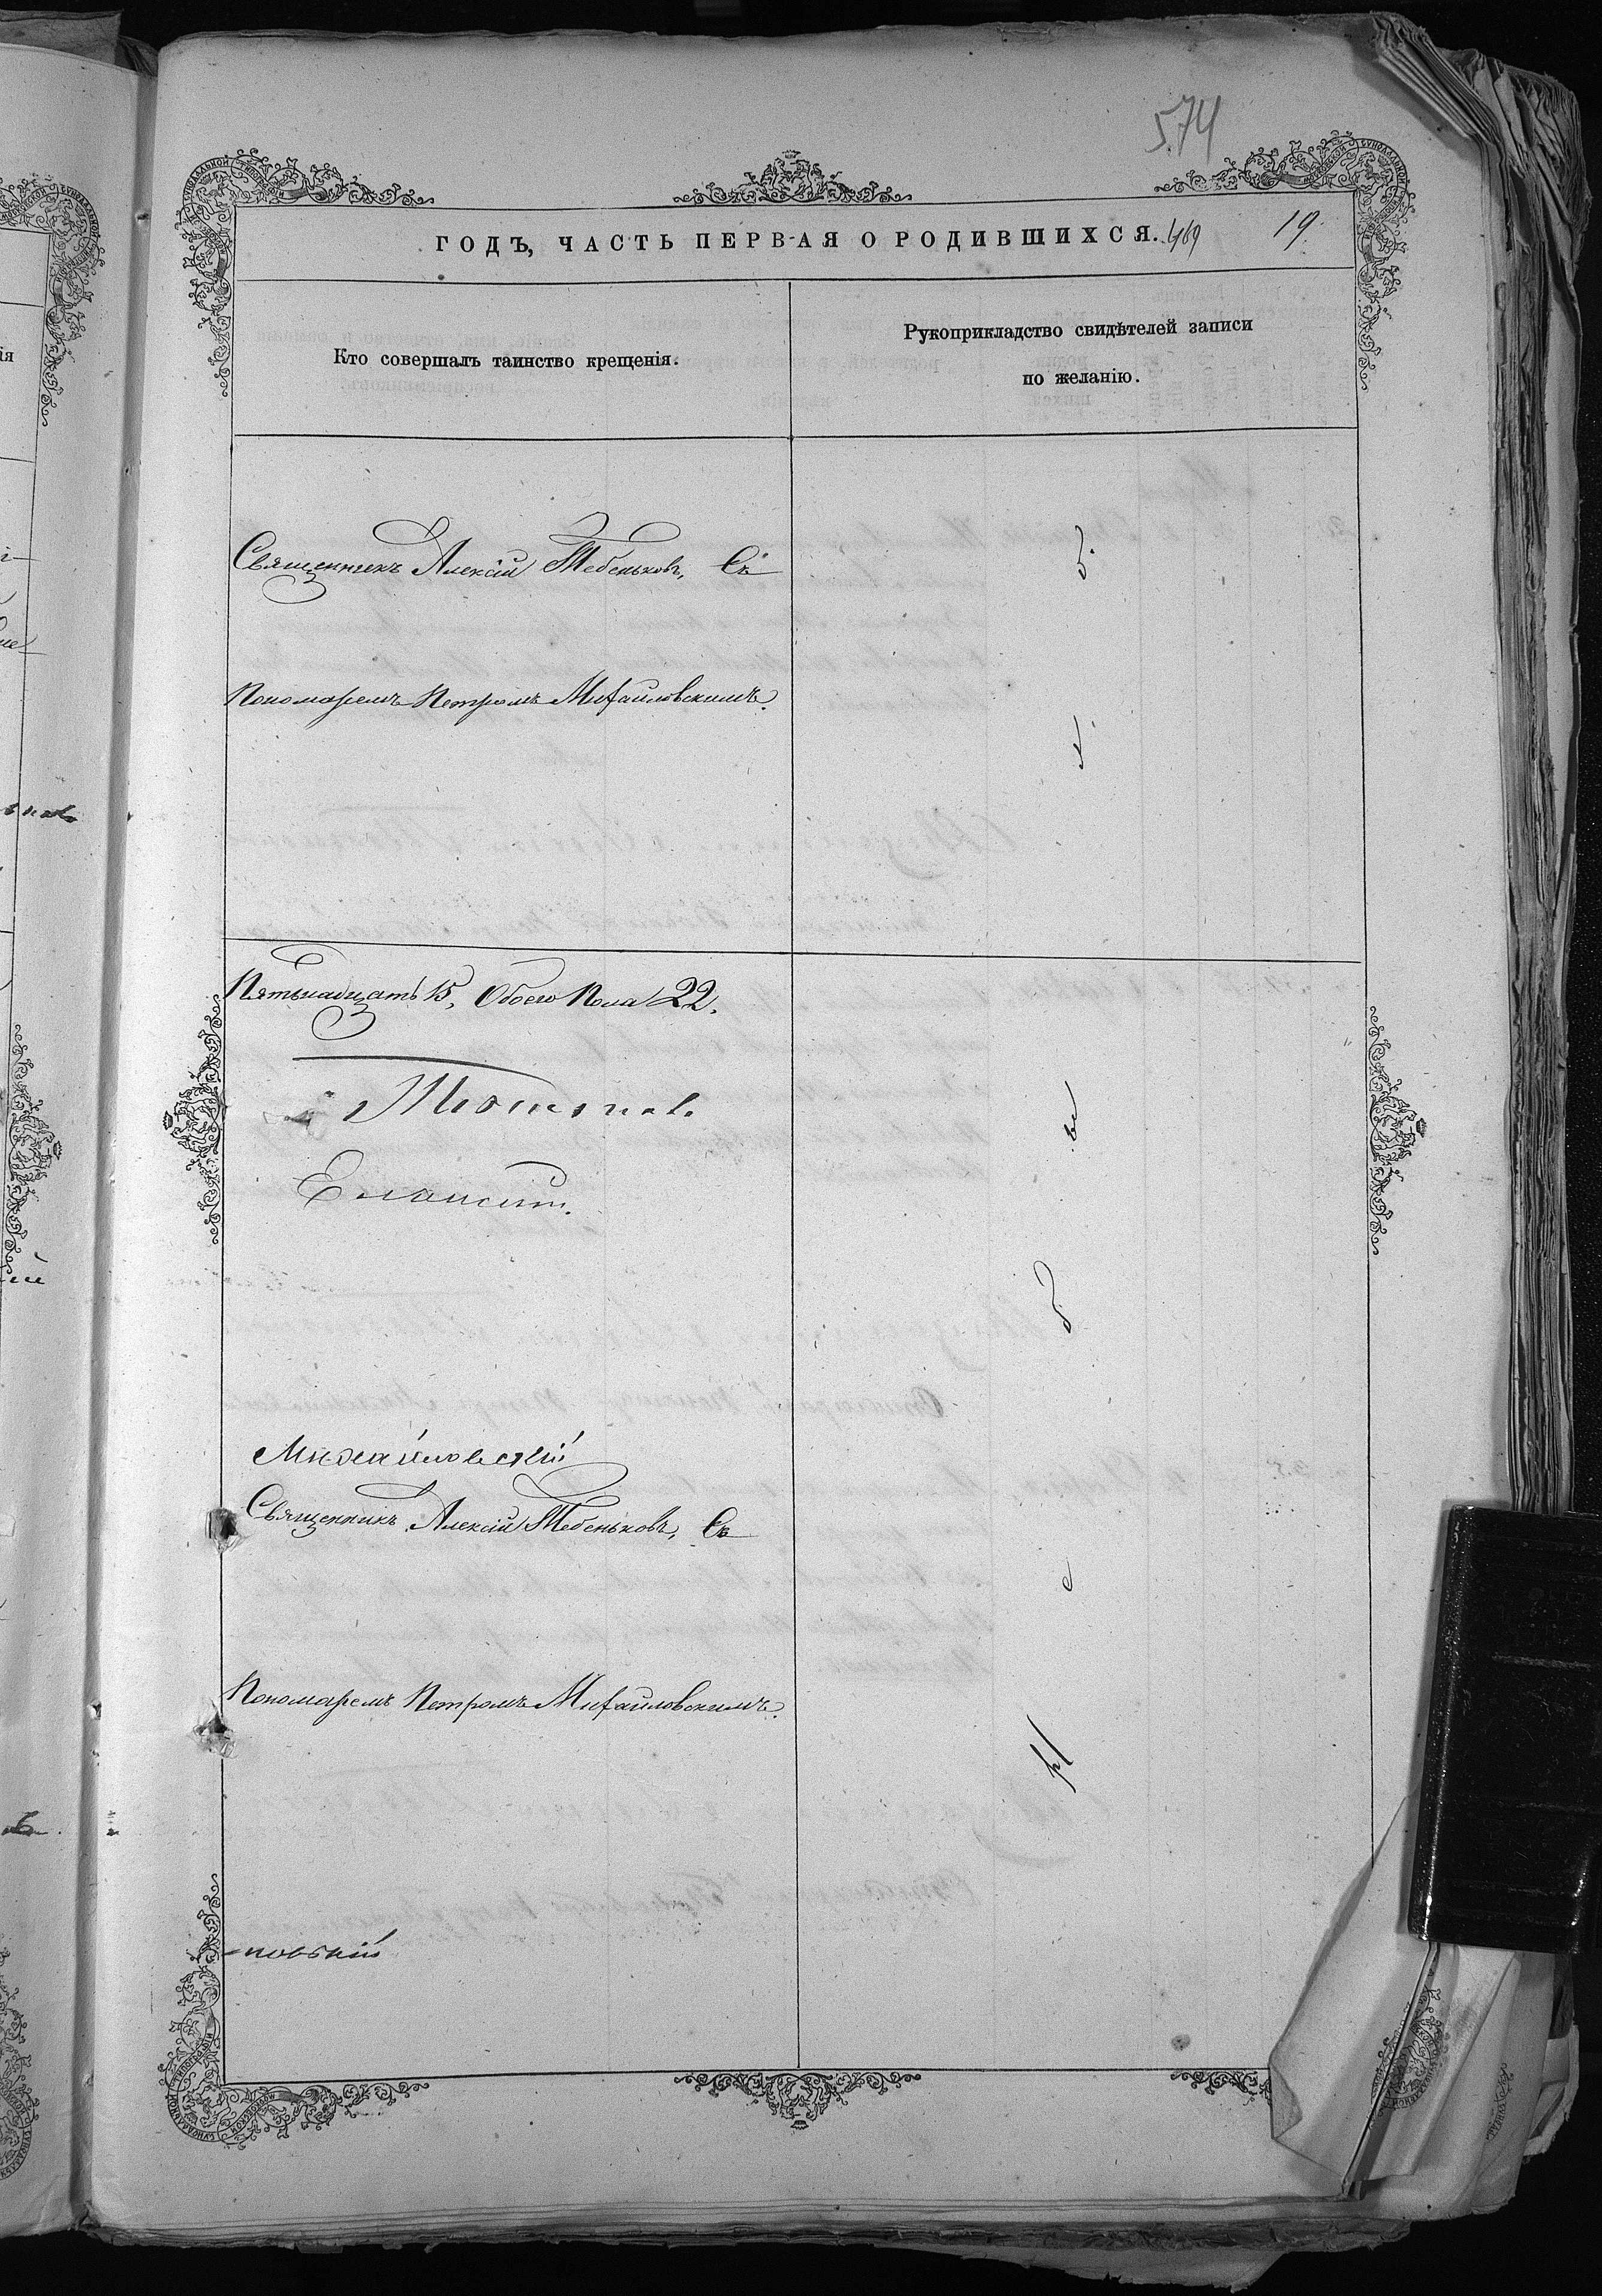 574
ГОДЪ, ЧАСТЬ ПЕРВАЯ О РОДИВШИХСЯ. 469 19.
Кто совершалъ таинство крещенія.
Рукоприкладство свидѣтелей записи
по желанію.
Священникъ Алексій Тебеньковъ, Съ
б.
Пономаремъ Петромъ Михайловскимъ.
Пятьнадцать 15, Обоего Пола 22.
б
Михайловскій
Священникъ Алексій Тебеньковъ, Съ
с
Пономаремъ Петромъ Михайловскимъ.
-ловскій